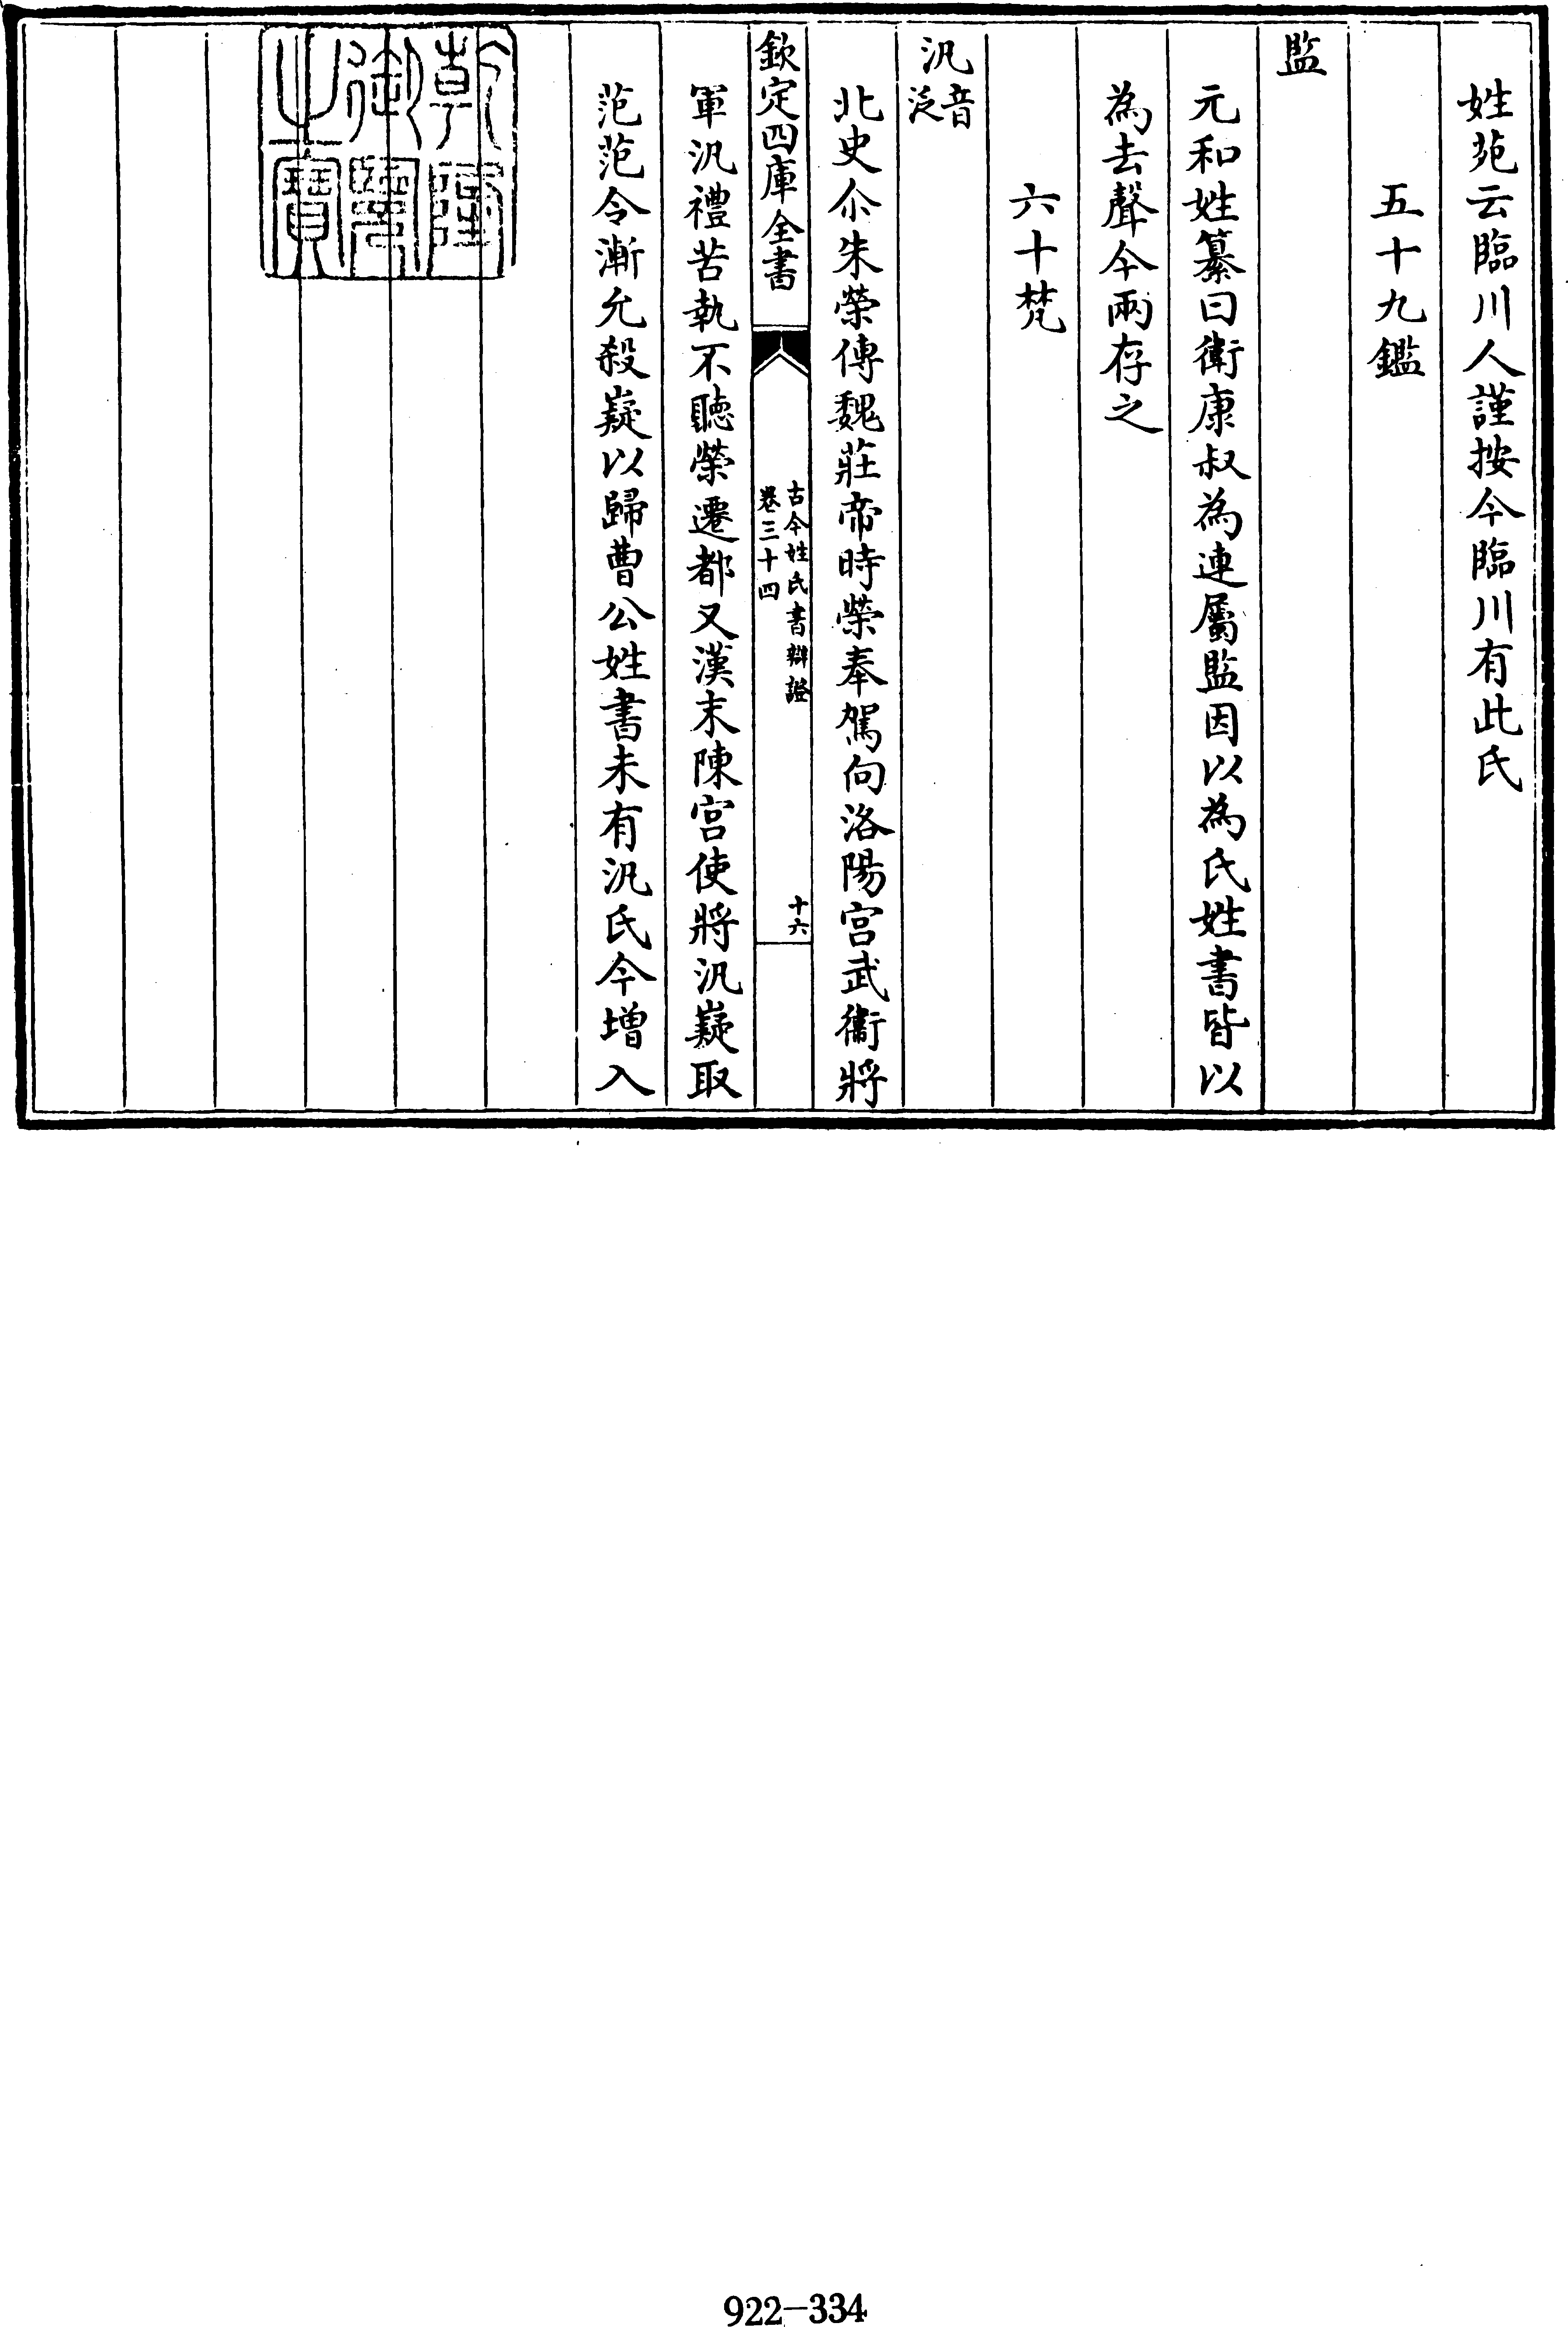 姓苑云臨川人謹按今臨川有此氏
五十九鑑
監
元和姓纂曰衛康叔為連屬監因以為氏姓書皆以
為去聲今兩存之
六十梵
汎音泛
北史尒朱榮傳魏莊帝時榮奉駕向洛陽宫武衞將
欽定四庫全書
古今姓氏書辯證
卷三十四
十六
軍汎禮苦執不聽榮遷都又漢末陳宫使將汎嶷取
范范令漸允殺嶷以歸曹公姓書未有汎氏今增入
乾隆
御覽
之寶
922-334